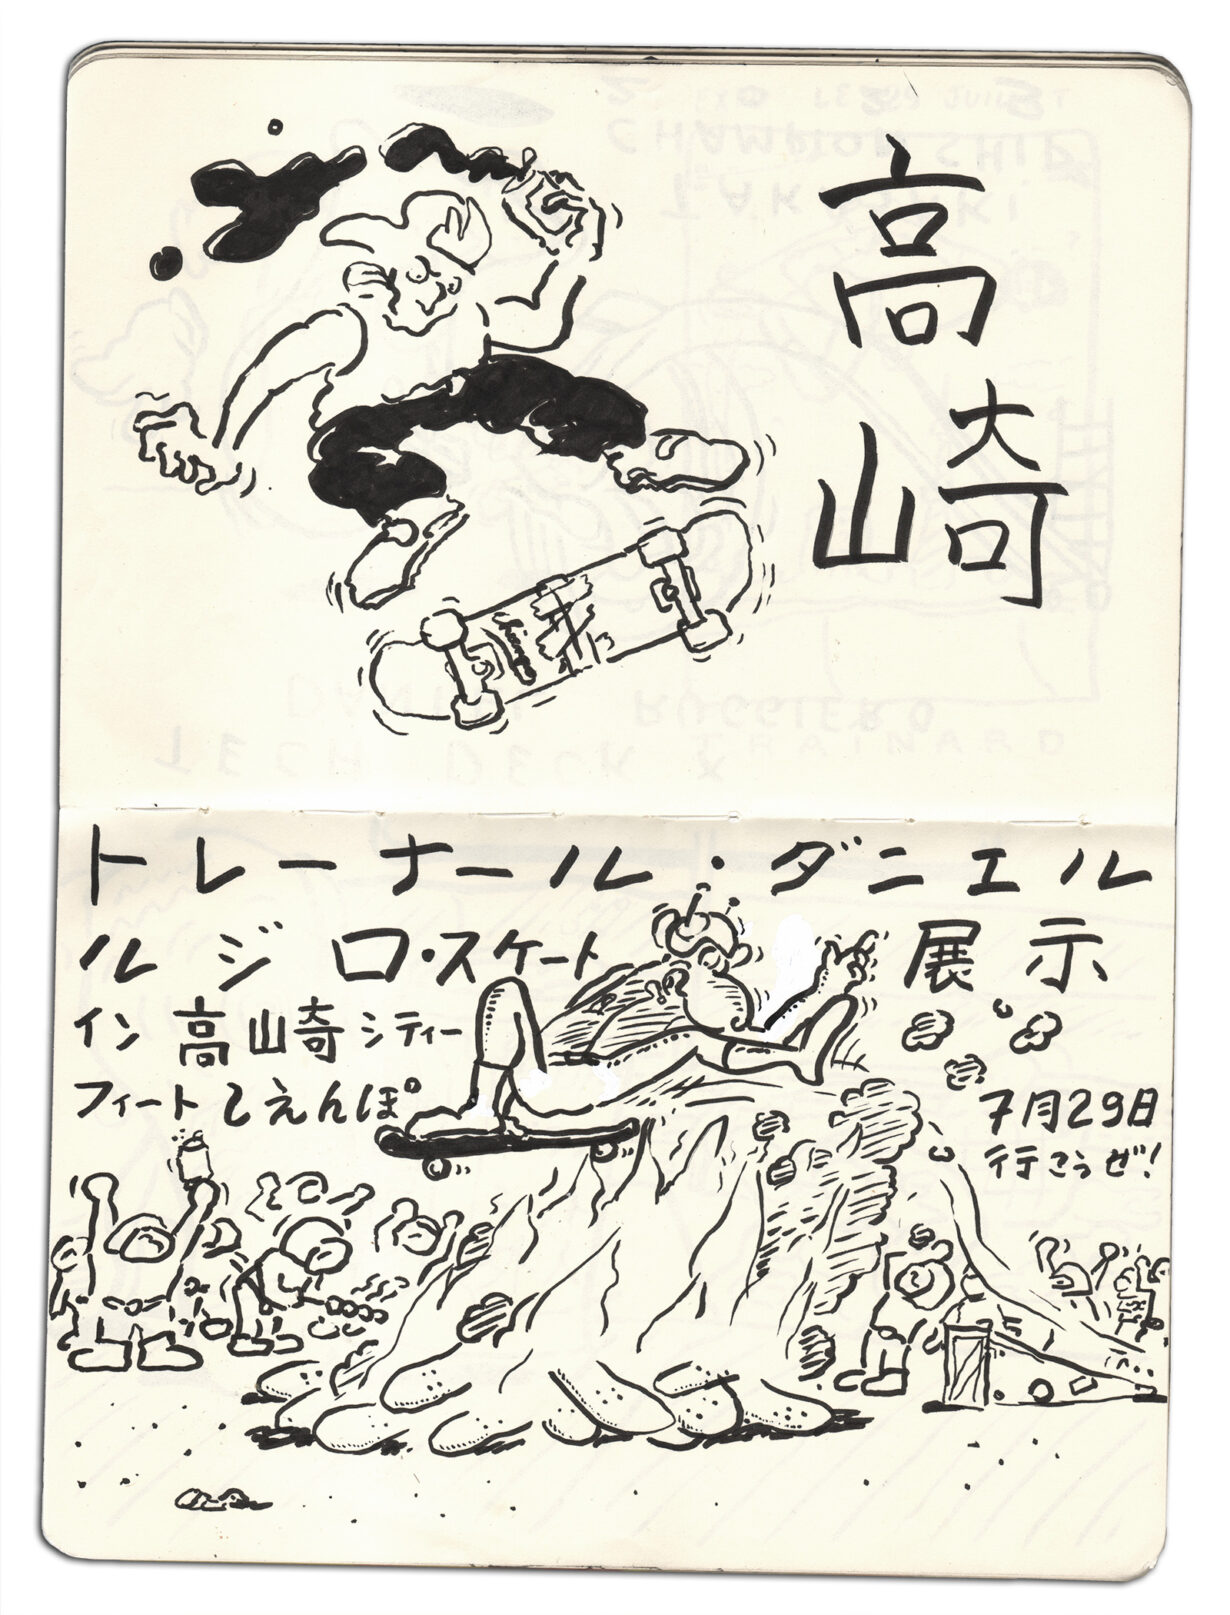 高
崎
トレーナール・ダニエル
ルジロ・スケート 展示
イン 高崎 シティー
フィート てえんぽ
7月29日
行こうぜ!